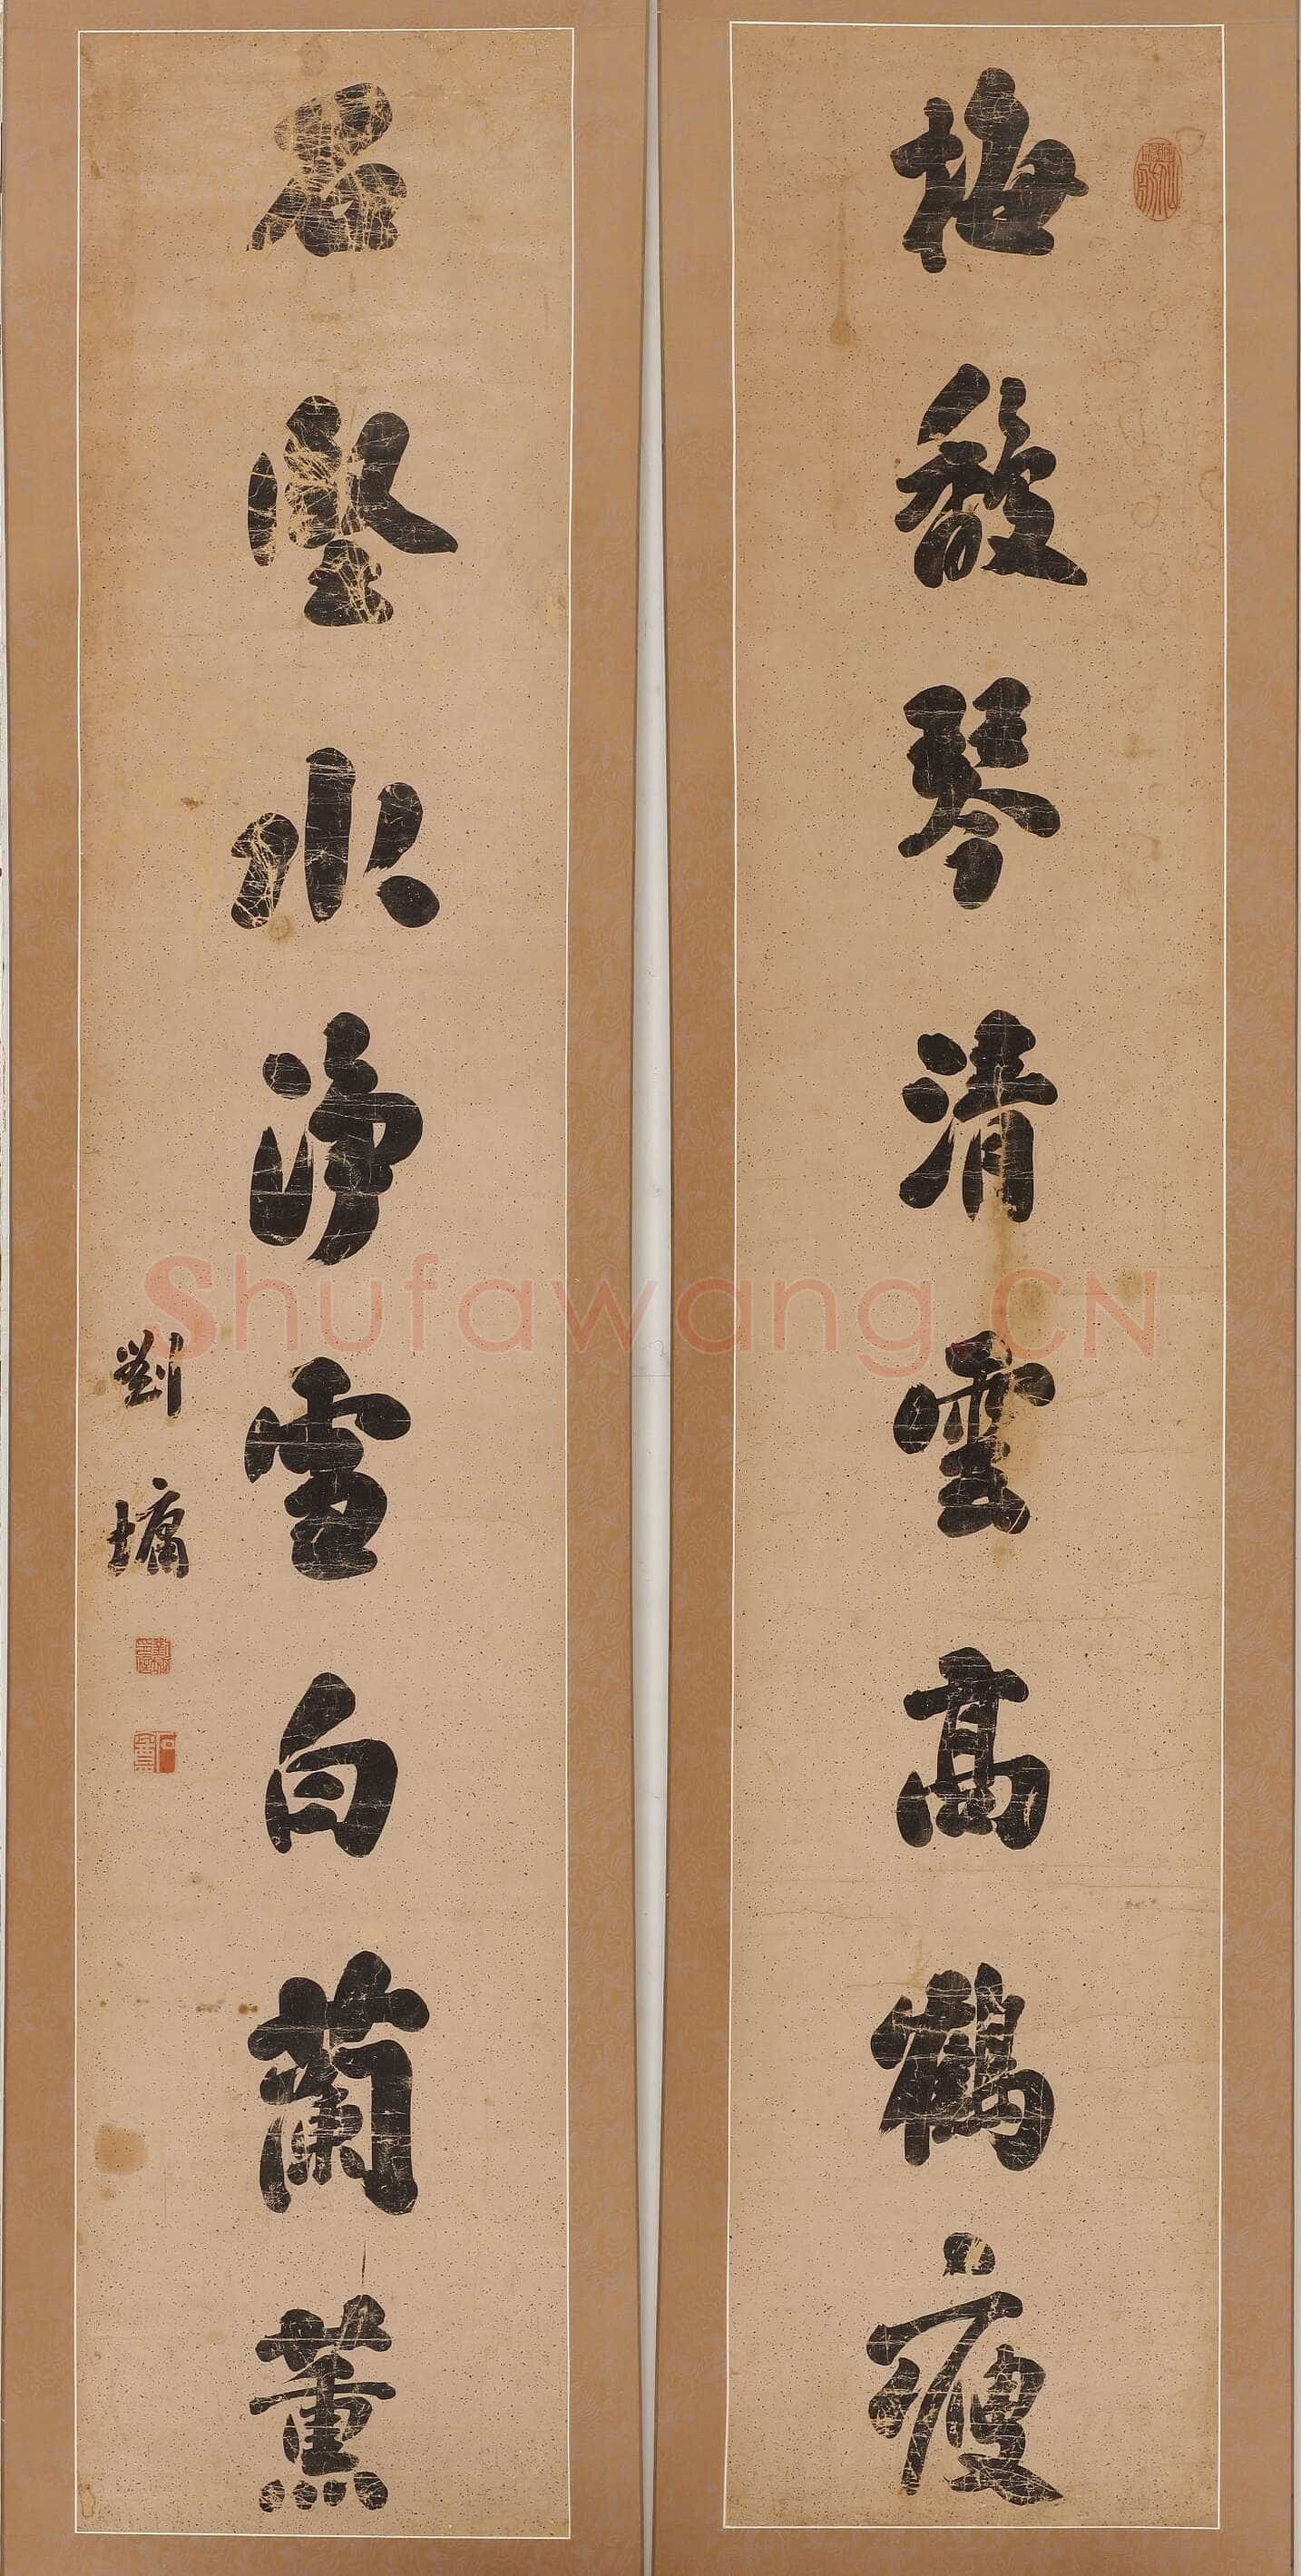 梅馥琴清雲高鶴瘦
石堅水淨雪白蘭薰
劉墉
Shufawang.CN